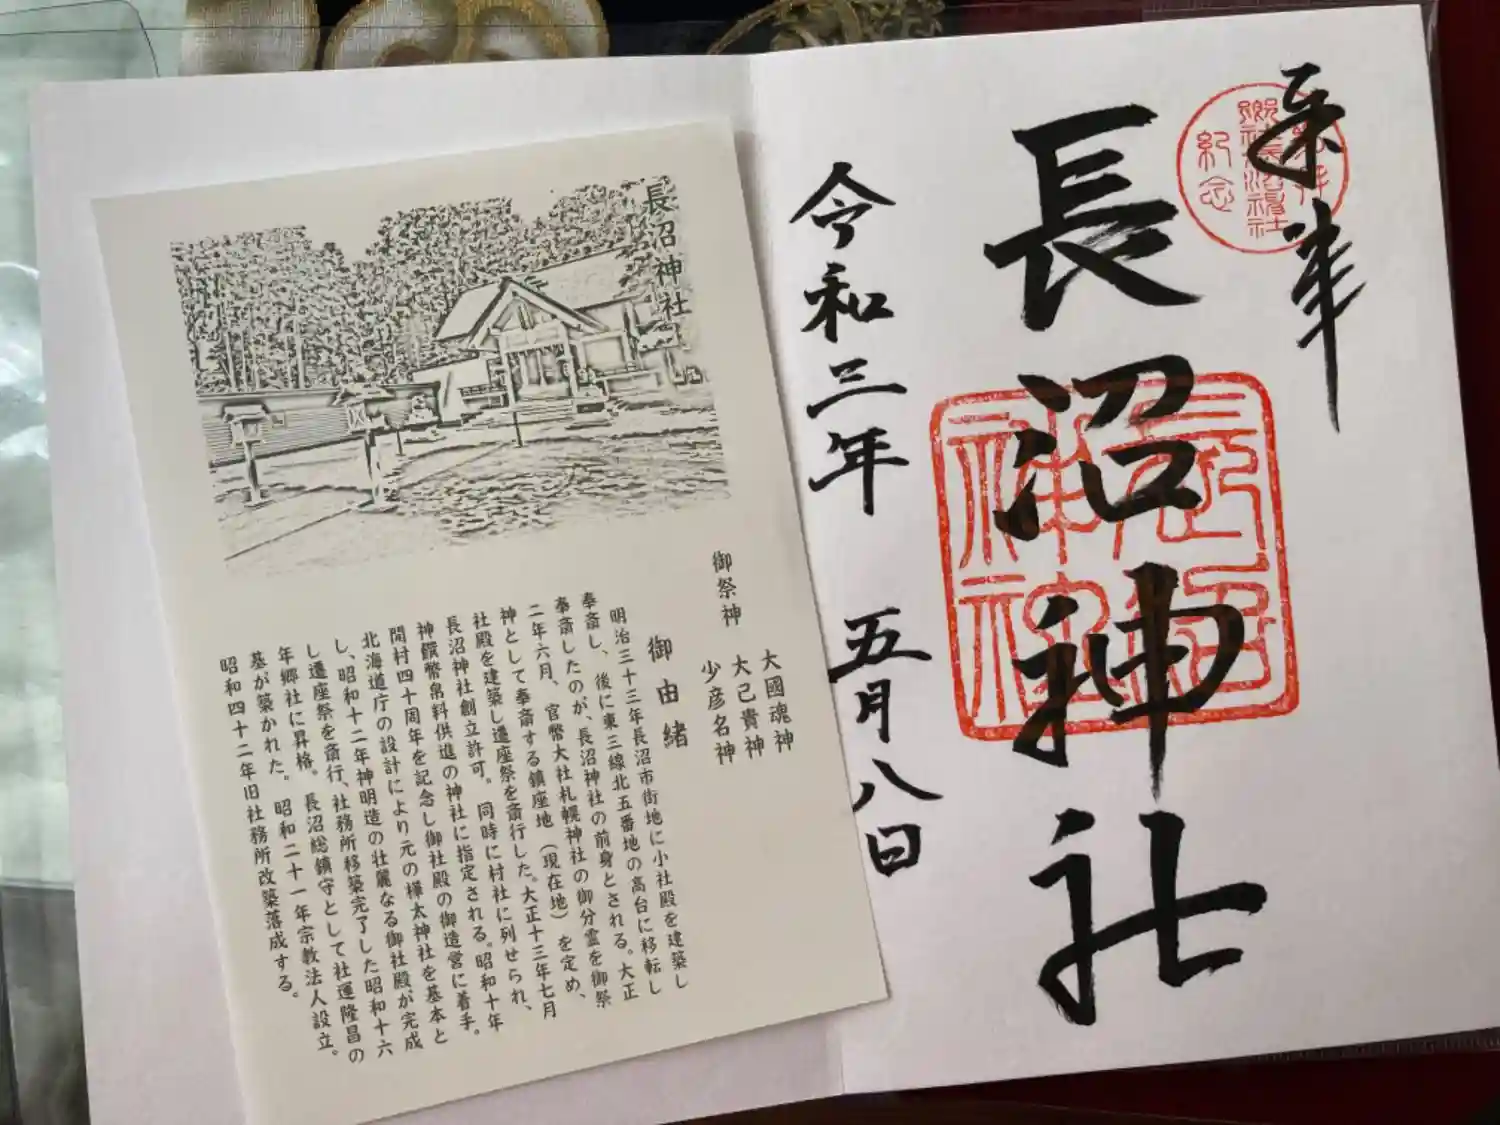 奉拝
参拝
郷社長沼神社
紀念
長沼神社
長沼
神社
令和三年 五月八日
長沼神社
御祭神 大國魂神
大己貴神
少彦名神
御由緒
明治三十三年長沼市街地に小社殿を建築し
奉斎し、後に東三線北五番地の高台に移転し
奉斎したのが、長沼神社の前身とされる。大正
二年六月、官幣大社札幌神社の御分霊を御祭
神として奉斎する鎮座地（現在地）を定め、
社殿を建築し遷座祭を斎行した。大正十三年七月
長沼神社創立許可。同時に村社に列せられ、
神饌幣帛料供進の神社に指定される。昭和十年
開村四十周年を記念し御社殿の御造営に着手。
北海道庁の設計により元の樺太神社を基本と
し、昭和十二年神明造の壮麗なる御社殿が完成
し遷座祭を斎行、社務所移築完了した昭和十六
年郷社に昇格。長沼総鎮守として社運隆昌の
基が築かれた。昭和二十一年宗教法人設立。
昭和四十二年旧社務所改築落成する。